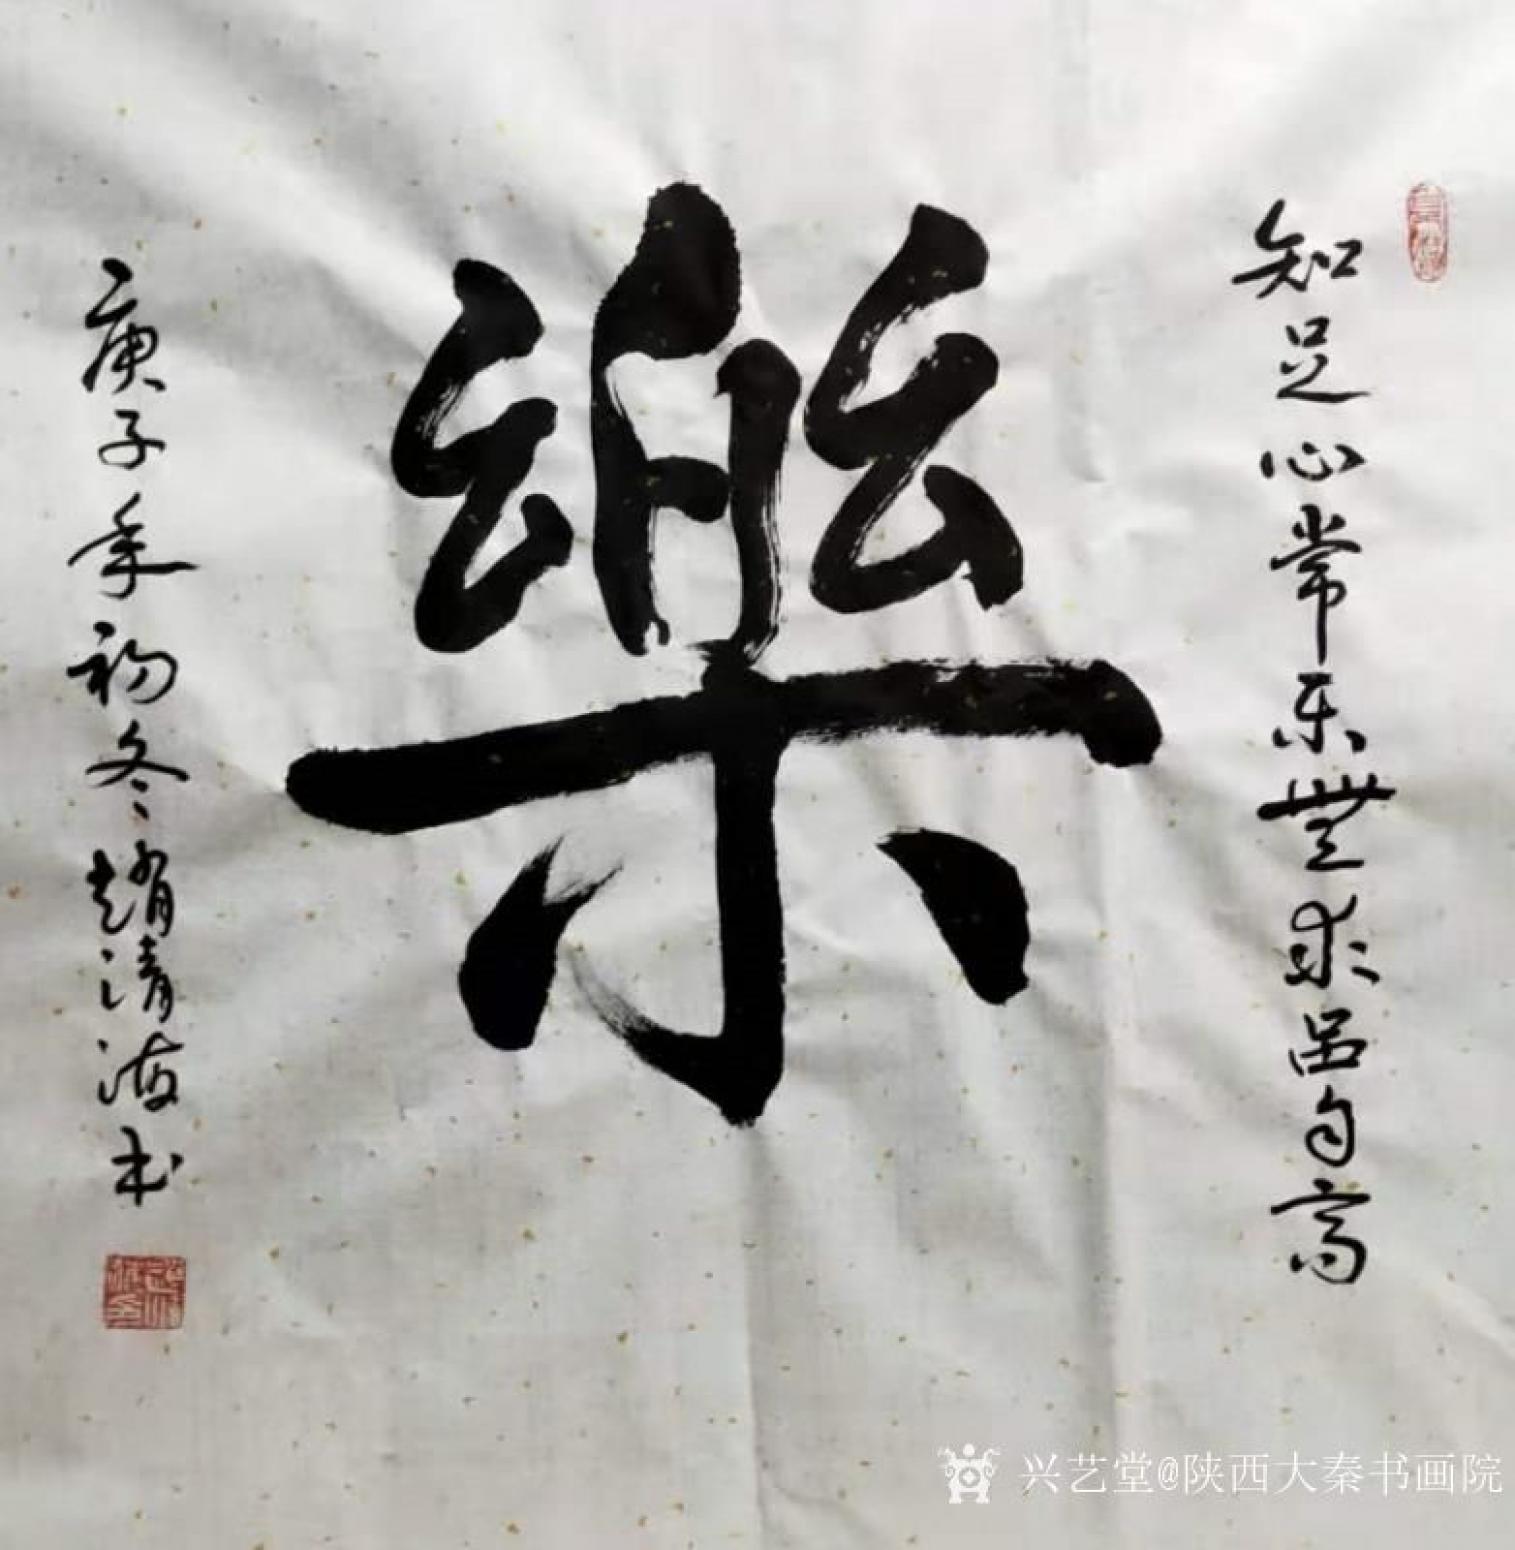 知足心常乐無求品自高
樂
庚子年初冬趙清海书
兴艺堂@陕西大秦书画院